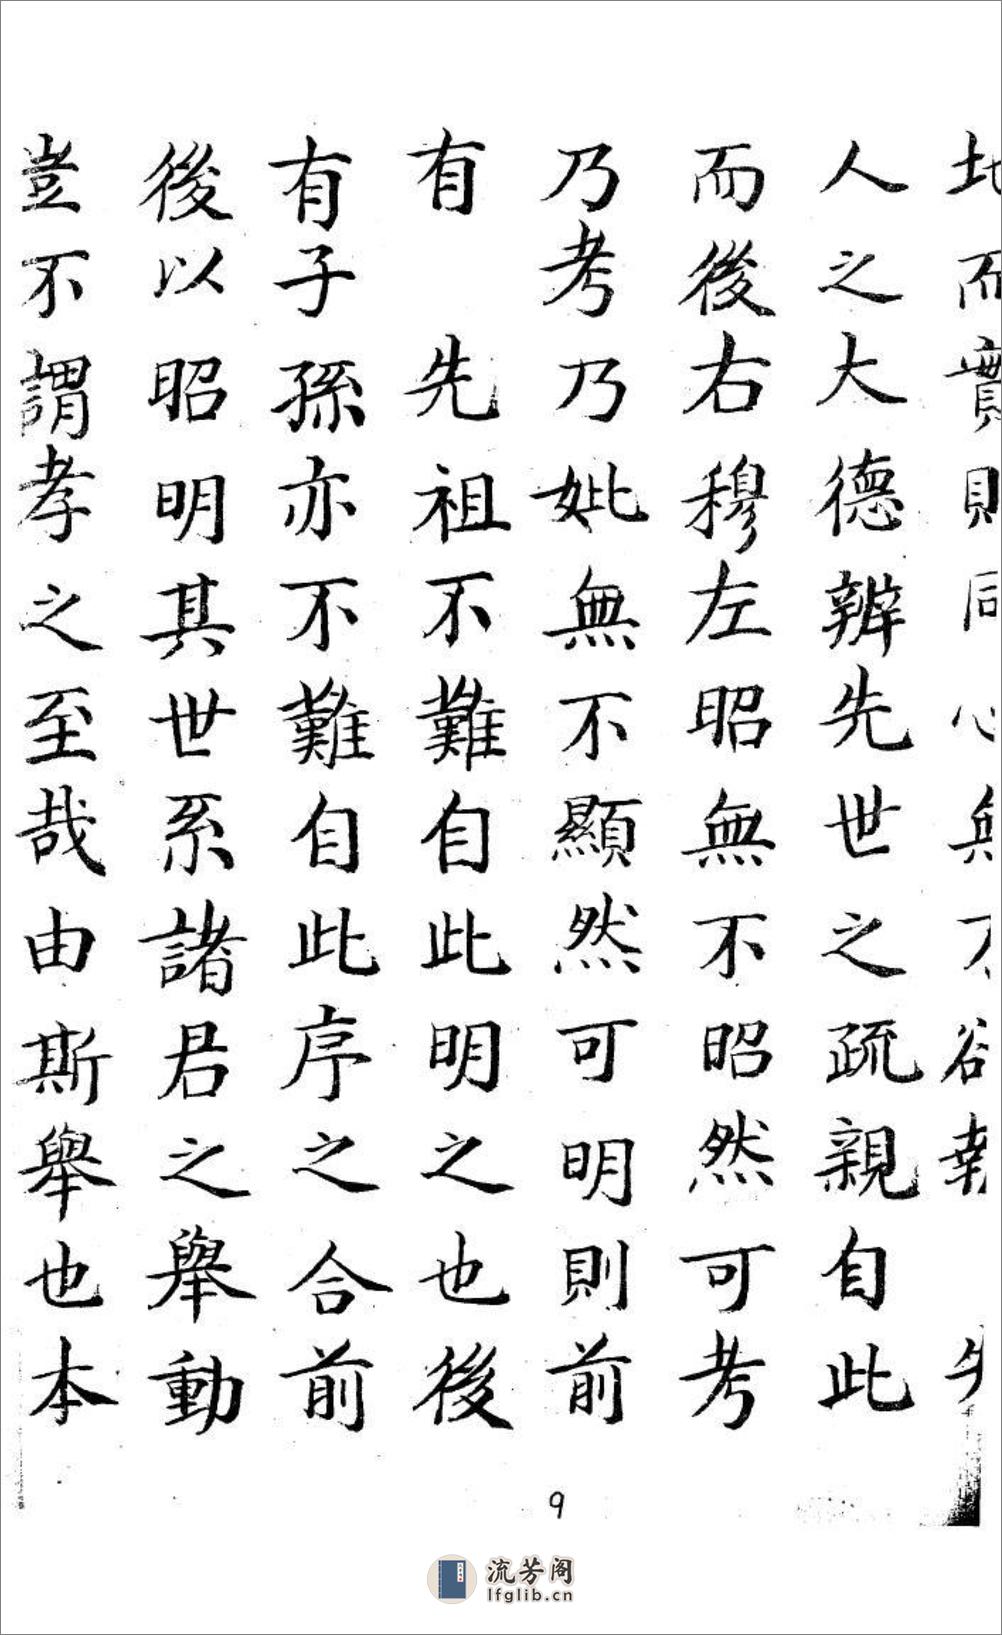 此而實則同心無不谷
人之大德辨先世之疏親自此
而後右穆左昭無不昭然可考
乃考乃妣無不顯然可明則前
有先祖不難自此明之也後
有子孫亦不難自此序之合前
後以昭明其世系諸君之舉動
豈不謂孝之至哉由斯舉也本
9
流芳阁
lfglib.cn